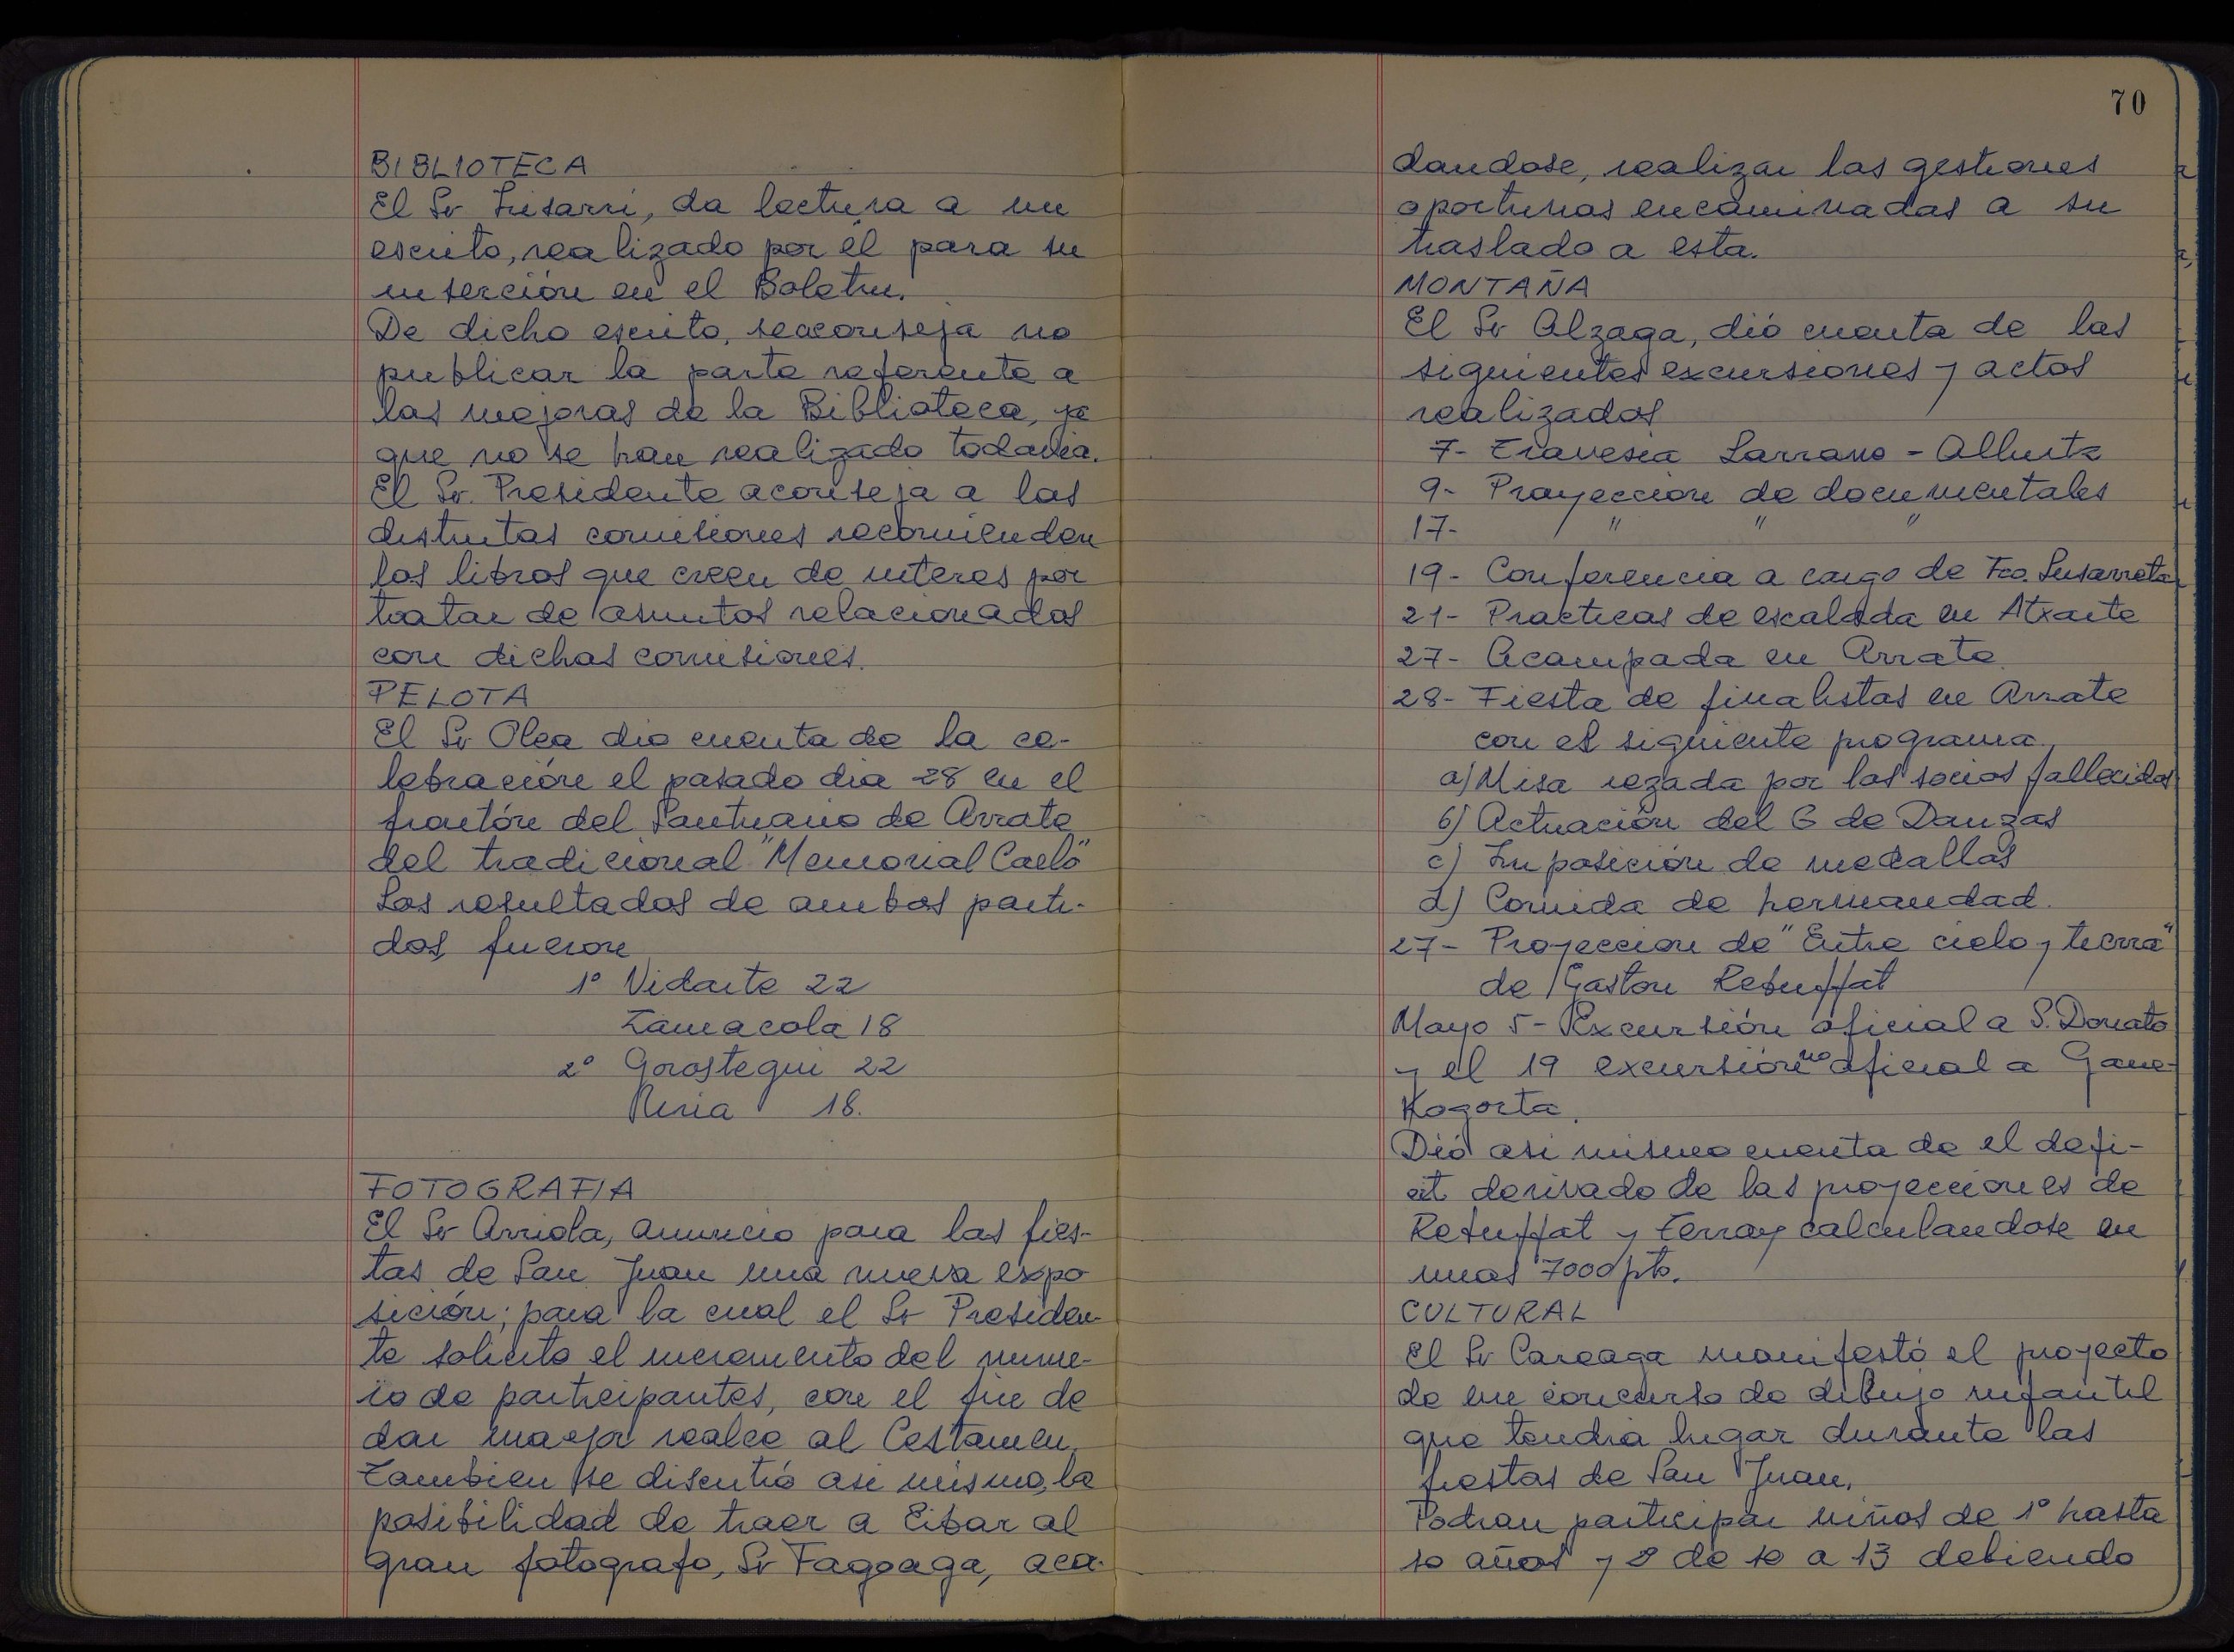 BIBLIOTECA
El Sr Irusarri, da lectura a un
escrito, realizado por él para su
inserción en el Boletin.
De dicho escrito, se aconseja no
publicar la parte referente a
las mejoras de la Biblioteca, ya
que no se han realizado todavia.
El Sr. Presidente aconseja a las
distintas comisiones recomienden
los libros que creen de interes por
tratar de asuntos relacionados
con dichas comisiones.
PELOTA
El Sr Olea dio cuenta de la ce-
lebración el pasado dia 28 en el
frontón del Santuario de Arrate
del tradicional "Memorial Carló"
Los resultados de ambos parti-
dos fueron
1º Vidarte 22
Zamacola 18
2º Gorostegui 22
18.
FOTOGRAFIA
El Sr Arriola, anuncio para las fies-
tas de San Juan una nueva expo
sición; para la cual el Sr Presiden-
te solicito el incremento del nume-
ro de participantes, con el fin de
dar mayor realce al Certamen.
Tambien se discutió asi mismo, la
posibilidad de traer a Eibar al
gran fotografo, Sr Fagoaga, acor-
70
dandose, realizar las gestiones
oportunas encaminadas a su
traslado a esta.
MONTAÑA
El Sr Alzaga, dió cuenta de las
siguientes excursiones y actos
realizados
7- Travesia Larrano - Alluitz
9- Proyeccion de documentales
17- " " "
19- Conferencia a cargo de Fco. Lusarreta
21- Practicas de escalada en Atxarte
27- Acampada en Arrate
28- Fiesta de finalistas en Arrate
con el siguiente programa.
a) Misa rezada por los socios fallecidos
b) Actuación del G de Danzas
c) Imposición de medallas
d) Comida de hermandad.
27- Proyeccion de "Entre cielo y tierra"
de Gaston Rebuffat
Mayo 5- Excursión oficial a S. Donato
y el 19 excursión no oficial a Gane-
Kogorta.
Dió asi mismo cuenta de el defi-
cit derivado de las proyecciones de
Rebuffat y Terray calculandose en
unas 7000 pts.
CULTURAL
El Sr Careaga manifestó el proyecto
de un concurso de dibujo infantil
que tendria lugar durante las
fiestas de San Juan.
Podran participar niños de 1º hasta
10 años y 2 de 10 a 13 debiendo